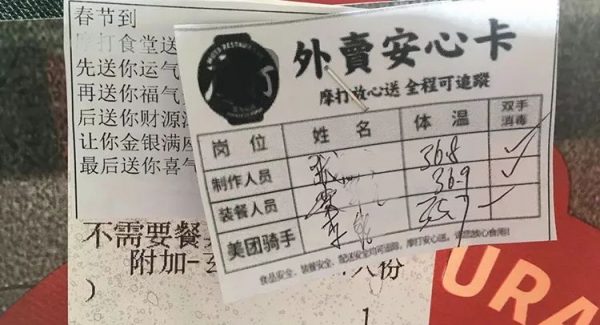 春节到
摩打食堂送
先送你运气
再送你福气
后送你财源
让你金银满座
最后送你喜气
外賣安心卡
摩打放心送 全程可追蹤
岗位 姓名 体温 双手消毒
制作人员 36.8 ✓
装餐人员 36.9 ✓
美团骑手 ✓
食品安全、装餐安全、配送安全均可追踪，摩打安心送，请您放心食用！
不需要餐
附加
份
)
1
URA